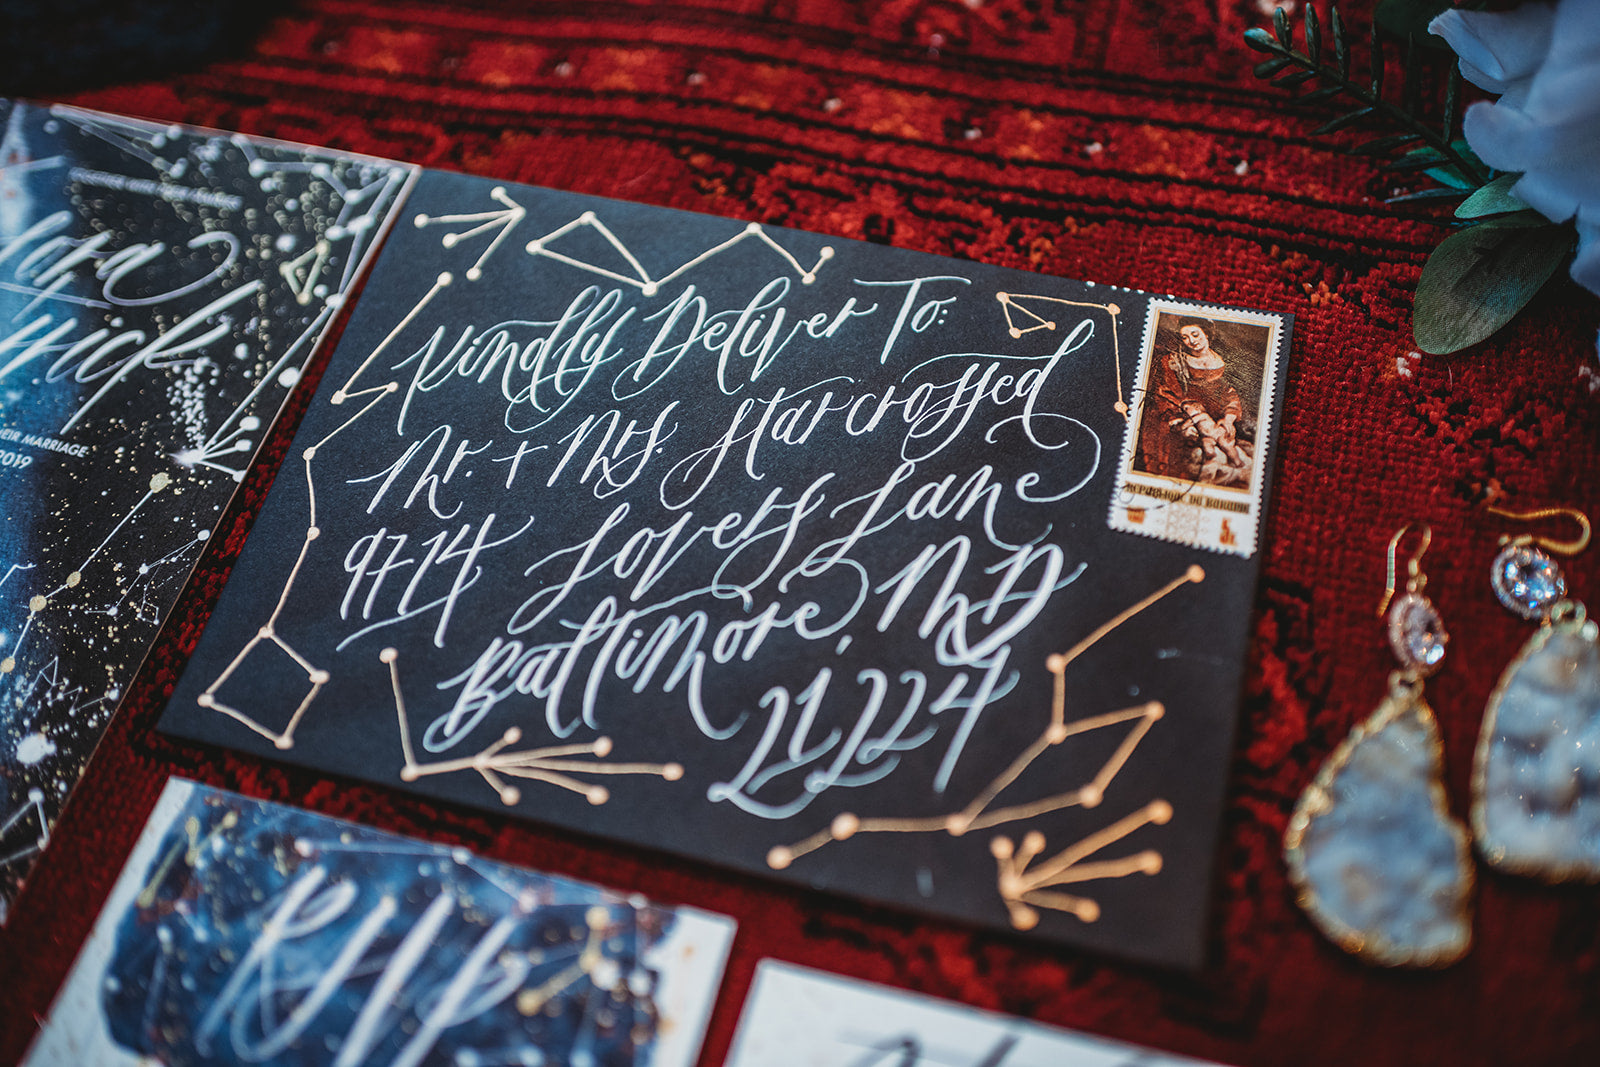 EIR MARRIAGE
2019
Kindly Deliver To:
Mr. + Mrs. Starcrossed
9714 Lovers Lane
Baltimore, MD
21224
REPUBLIQUE DU BURUNDI
5F
RSVP